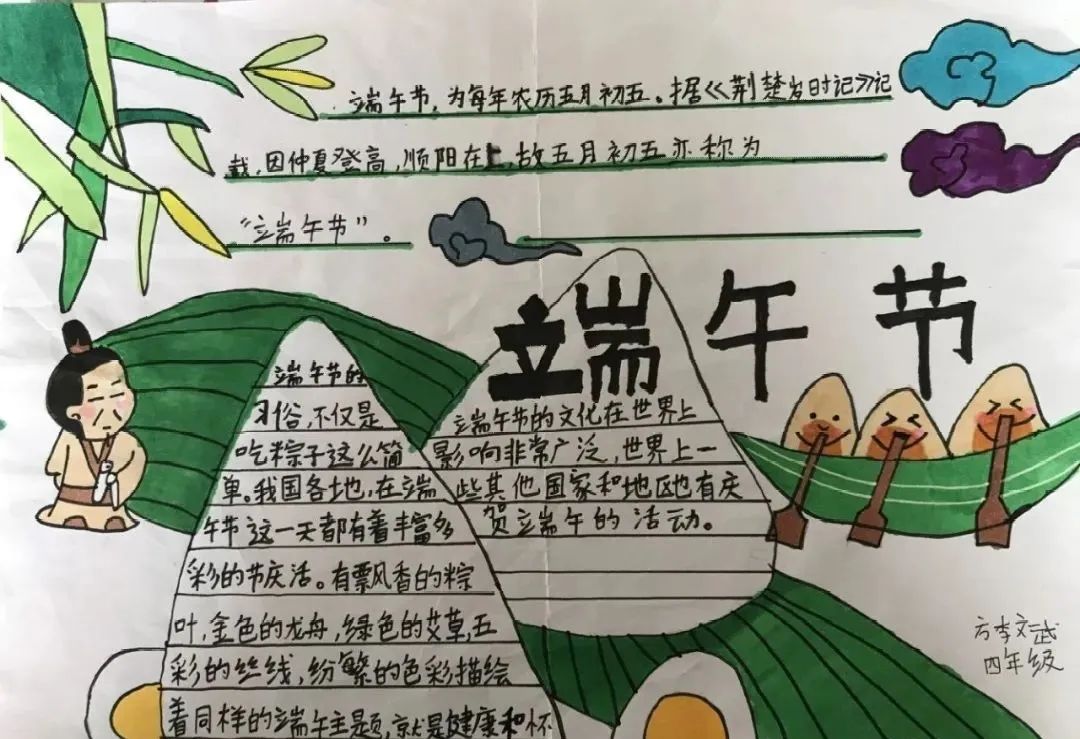 端午节，为每年农历五月初五。据《荆楚岁时记》记
载，因仲夏登高，顺阳在上，故五月初五亦称为
“端午节”。
端午节
端午节的
习俗，不仅是
吃粽子这么简
单。我国各地，在端
午节这一天都有着丰富多
彩的节庆活。有飘香的粽
叶，金色的龙舟，绿色的艾草，五
彩的丝线，纷繁的色彩描绘
着同样的端午主题，就是健康和怀
端午节的文化在世界上
影响非常广泛，世界上一
些其他国家和地区也有庆
贺端午的活动。
方李文武
四年级